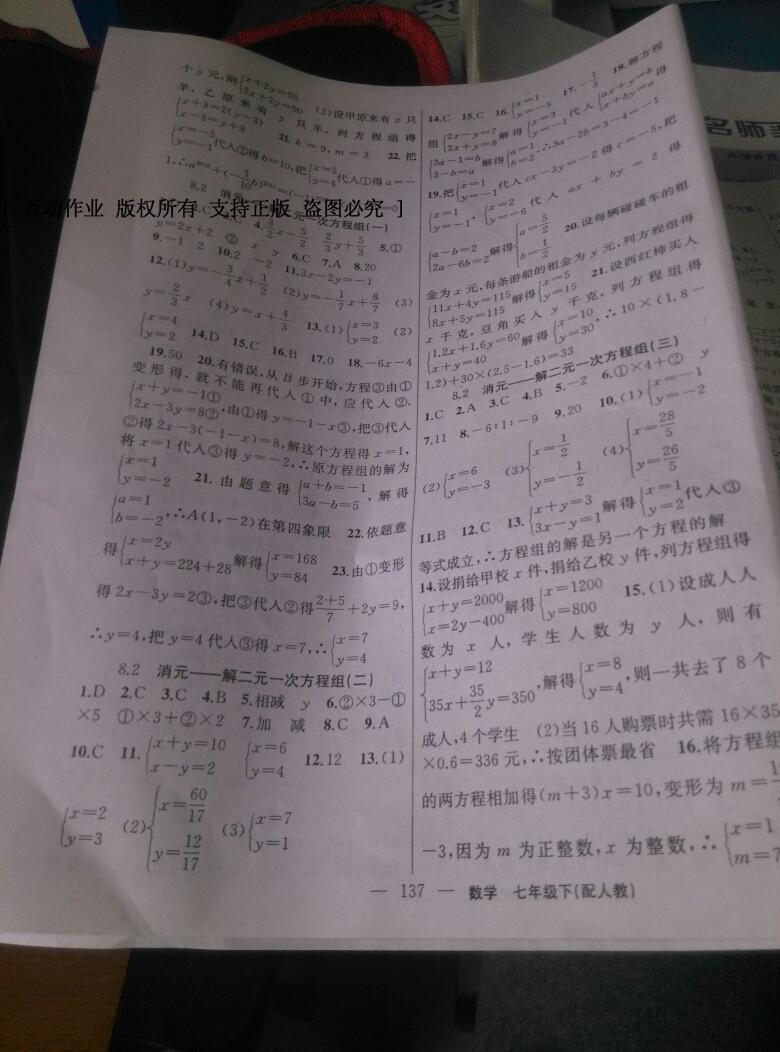 个 y 元,则{x+2y=55 2x+3y=90 (2)设甲原来有 x 只
羊,乙原来有 y 只羊,列方程组得
{x+3=2(y-3) x-3=y+3 21.k=9,m=3 22.把
{x=-3 y=-1代入②得b=10,把{x=5 y=4代入①得a=-
8.2 消元 一次方程组(一)
[ 互动作业 版权所有 支持正版 盗图必究 ]
y=2x+2 ② x y 6.C 7.A 8.20
9.-1 2 10.2 -2 11.3x-2y=-1
12.(1)y=-3/4x+1/2 (2)y=-1/7x+8/7 (3)
y=2/3x (4)y=x+4/3 13.(1){x=3 y=2 (2)
{x=4 y=2 14.D 15.C 16.B 17.0 18.-6x-4
19.50 20.有错误,从B步开始,方程③由①
变形得,就不能再代入①中,应代入②.
{x+y=-1① 2x-3y=8②,由①得y=-1-x③,把③代入
②得2x-3(-1-x)=8,解这个方程得x=1,
将x=1代入③得y=-2,∴原方程组的解为
{x=1 y=-2 21.由题意得{a+b=-1 3a-b=5,解得
{a=1 b=-2,∴A(1,-2)在第四象限 22.依题意
得{x=2y x+y=224+28解得{x=168 y=84 23.由①变形
得2x-3y=2③,把③代入②得(2+5)/7+2y=9,
∴y=4,把y=4代入③得x=7,∴{x=7 y=4
8.2 消元——解二元一次方程组(二)
1.D 2.C 3.C 4.B 5.相减 y 6.②×3-①
×5 ①×3+②×2 7.加 减 8.C 9.A
10.C 11.{x+y=10 x-y=2 {x=6 y=4 12.12 13.(1)
{x=2 y=3 (2){x=60/17 y=12/17 (3){x=7 y=1
14.C 15.C 16.{x=1 y=-3 17.-1/3 18.解方程
组{2x-y=7 3x+y=8解得{x=3 y=-1代入{ax+y=b x+by=a得
{3a-1=b 3-b=a解得{a=1 b=2,∴3a-2b=3-4=-1
19.把{x=1 y=-1代入cx-3y=-2得c=-5,把
{x=1 y=-1,{x=2 y=-6代入ax+by=2得
{a-b=2 2a-6b=2解得{a=5/2 b=1/2 20.设每辆碰碰车的租
金为x元,每条游船的租金为y元,列方程组得
{11x+4y=115 8x+5y=115解得{x=5 y=15 21.设西红柿买入
x千克,豆角买入y千克,列方程组得
{1.2x+1.6y=60 x+y=40解得{x=10 y=30,∴10×(1.8-
1.2)+30×(2.5-1.6)=33
8.2 消元——解二元一次方程组(三)
1.C 2.A 3.C 4.B 5.-2 6.①×4+② y
7.11 8.-6:1:-9 9.20 10.(1){x=-1 y=-2
(2){x=6 y=-3 (3){x=1/2 y=-1/2 (4){x=28/5 y=26/5
11.B 12.C 13.{x+y=3 3x-y=1解得{x=1 y=2代入③
等式成立,∴方程组的解是另一个方程的解
14.设捐给甲校x件,捐给乙校y件,列方程组得
{x+y=2000 x=2y-400解得{x=1200 y=800 15.(1)设成人人
数为x人,学生人数为y人,则有
{x+y=12 35x+35/2y=350,解得{x=8 y=4,则一共去了8个
成人,4个学生 (2)当16人购票时共需16×35
×0.6=336元,∴按团体票最省 16.将方程组
的两方程相加得(m+3)x=10,变形为m=
-3,因为m为正整数,x为整数,∴{x=1 m=7
— 137 — 数学 七年级下(配人教)
名师